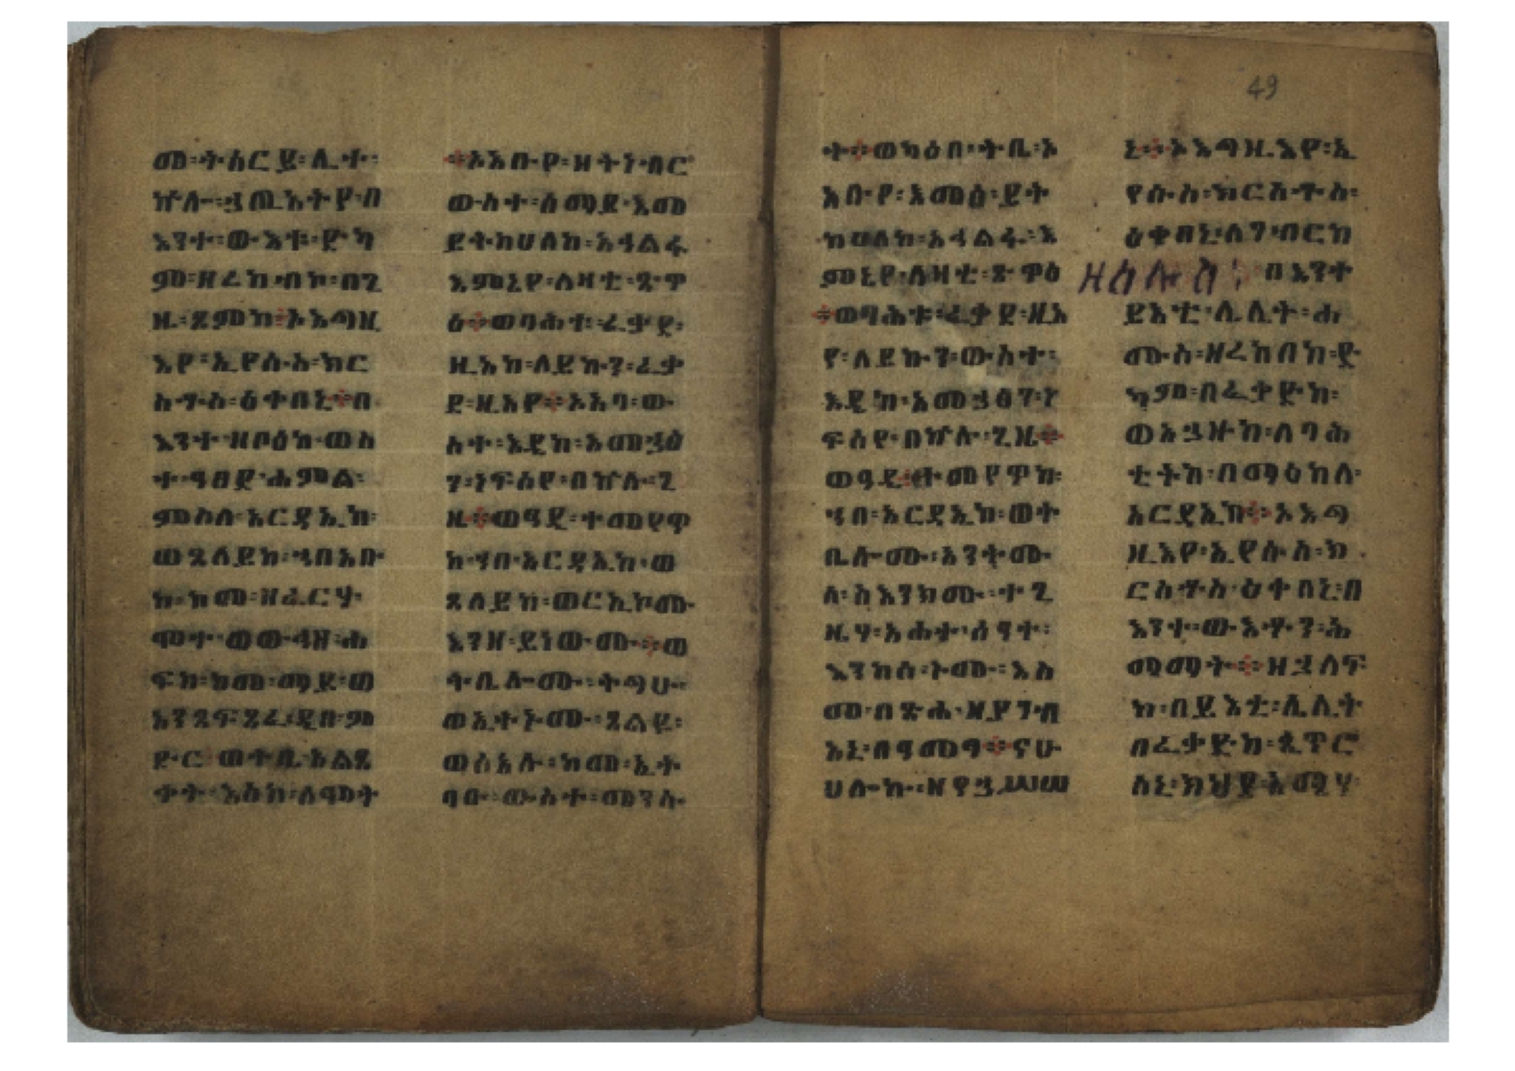 መ፡ትሰርይ፡ሊተ፡
ኵሎ፡ኃጢአትየ፡በ
እንተ፡ውእቱ፡ድካ
ም፡ዘረከብኮ፡በጊ
ዜ፡ጾምከ፨ኦእግዚ
እየ፡ኢየሱስ፡ክር
ስቶስ፡ዕቀበኒ፨በ
እንተ፡ዘቦዕከ፡ውስ
ተ፡ዓፀደ፡ሐምል፡
ምስለ፡አርዳኢከ፡
ወጸለይከ፡ኀበ፡አቡ
ከ፡ከመ፡ዘፈርሃ፡
ሞተ፡ወውኅዘ፡ሐ
ፍከ፡ከመ፡ማይ፡ወ
አንጸፍጸፈ፡ዲበ፡ም
ድር፡ወተቢ፡አልጸ
ቀት፡እስከ፡ለሞት
፨ኦአቡየ፡ዘትነብር
ውስተ፡ሰማይ፡እመ
ይትከሀለከ፡አኅልፋ
እምኔየ፡ለዛቲ፡ጽዋ
ዕ፨ወባሕቱ፡ፈቃደ፡
ዚአከ፡ለይኩን፡ፈቃ
ደ፡ዚአየ፨ኦአባ፡ው
ስተ፡እዴከ፡አመኃፅ
ን፡ነፍስየ፡በኵሉ፡ጊ
ዜ፨ወዓዲ፡ተመየጥ
ከ፡ኀበ፡አርዳኢከ፡ወ
ጸለይከ፡ወርኢኮሙ፡
እንዘ፡ይነውሙ፡፨ወ
ትቢሎሙ፡ትግሁ፡
ወኢተኑሙ፡ጸልዩ፡
ወሰአሉ፡ከመ፡ኢት
ባኡ፡ውስተ፡መንሱ
ት፨ወካዕበ፡ትቢ፡ኦ
አቡየ፡እመዕ፡ይት
ከሀለከ፡አኅልፋ፡እ
ምኔየ፡ለዛቲ፡ጽዋዕ
፨ወባሕቱ፡ፈቃደ፡ዚአ
የ፡ለይኩን፡ውስተ፡
እዴከ፡አመኃፅን፡ነ
ፍስየ፡በኵሉ፡ጊዜ፨
ወዓዲ፡ተመየጥከ፡
ኀበ፡አርዳኢከ፡ወት
ቢሎሙ፡አንትሙ
ሰ፡ስእንክሙ፡ተጊ
ዜሃ፡አሐተ፡ሰዓተ፡
እንከሰ፡ኑሙ፡እስ
መ፡በጽሐ፡ዘያገብ
እኒ፡በዓመፃ፨ናሁ
ሀሎከ፡ዘየኃሥሠ
ኒ፨ኦእግዚእየ፡ኢ
የሱስ፡ክርስቶስ፡
ዕቀበኒ፡ለገብርከ
ዘሰሎስ፡ በእንተ
ይእቲ፡ሌሊት፡ሐ
ሙስ፡ዘረከበከ፡ድ
ካም፡በፈቃድከ፡
ወአኃዙከ፡ለባሕ
ቲትከ፡በማዕከለ፡
አርዳኢከ፨ኦእግ
ዚእየ፡ኢየሱስ፡ክ
ርስቶስ፡ዕቀበኒ፡በ
እንተ፡ውእቶን፡ሕ
ማማት፨ዘኃለፍ
ከ፡በይእቲ፡ሌሊት
በፈቃድከ፡ጴጥሮ
ስኒ፡ክህደ፡አሜሃ